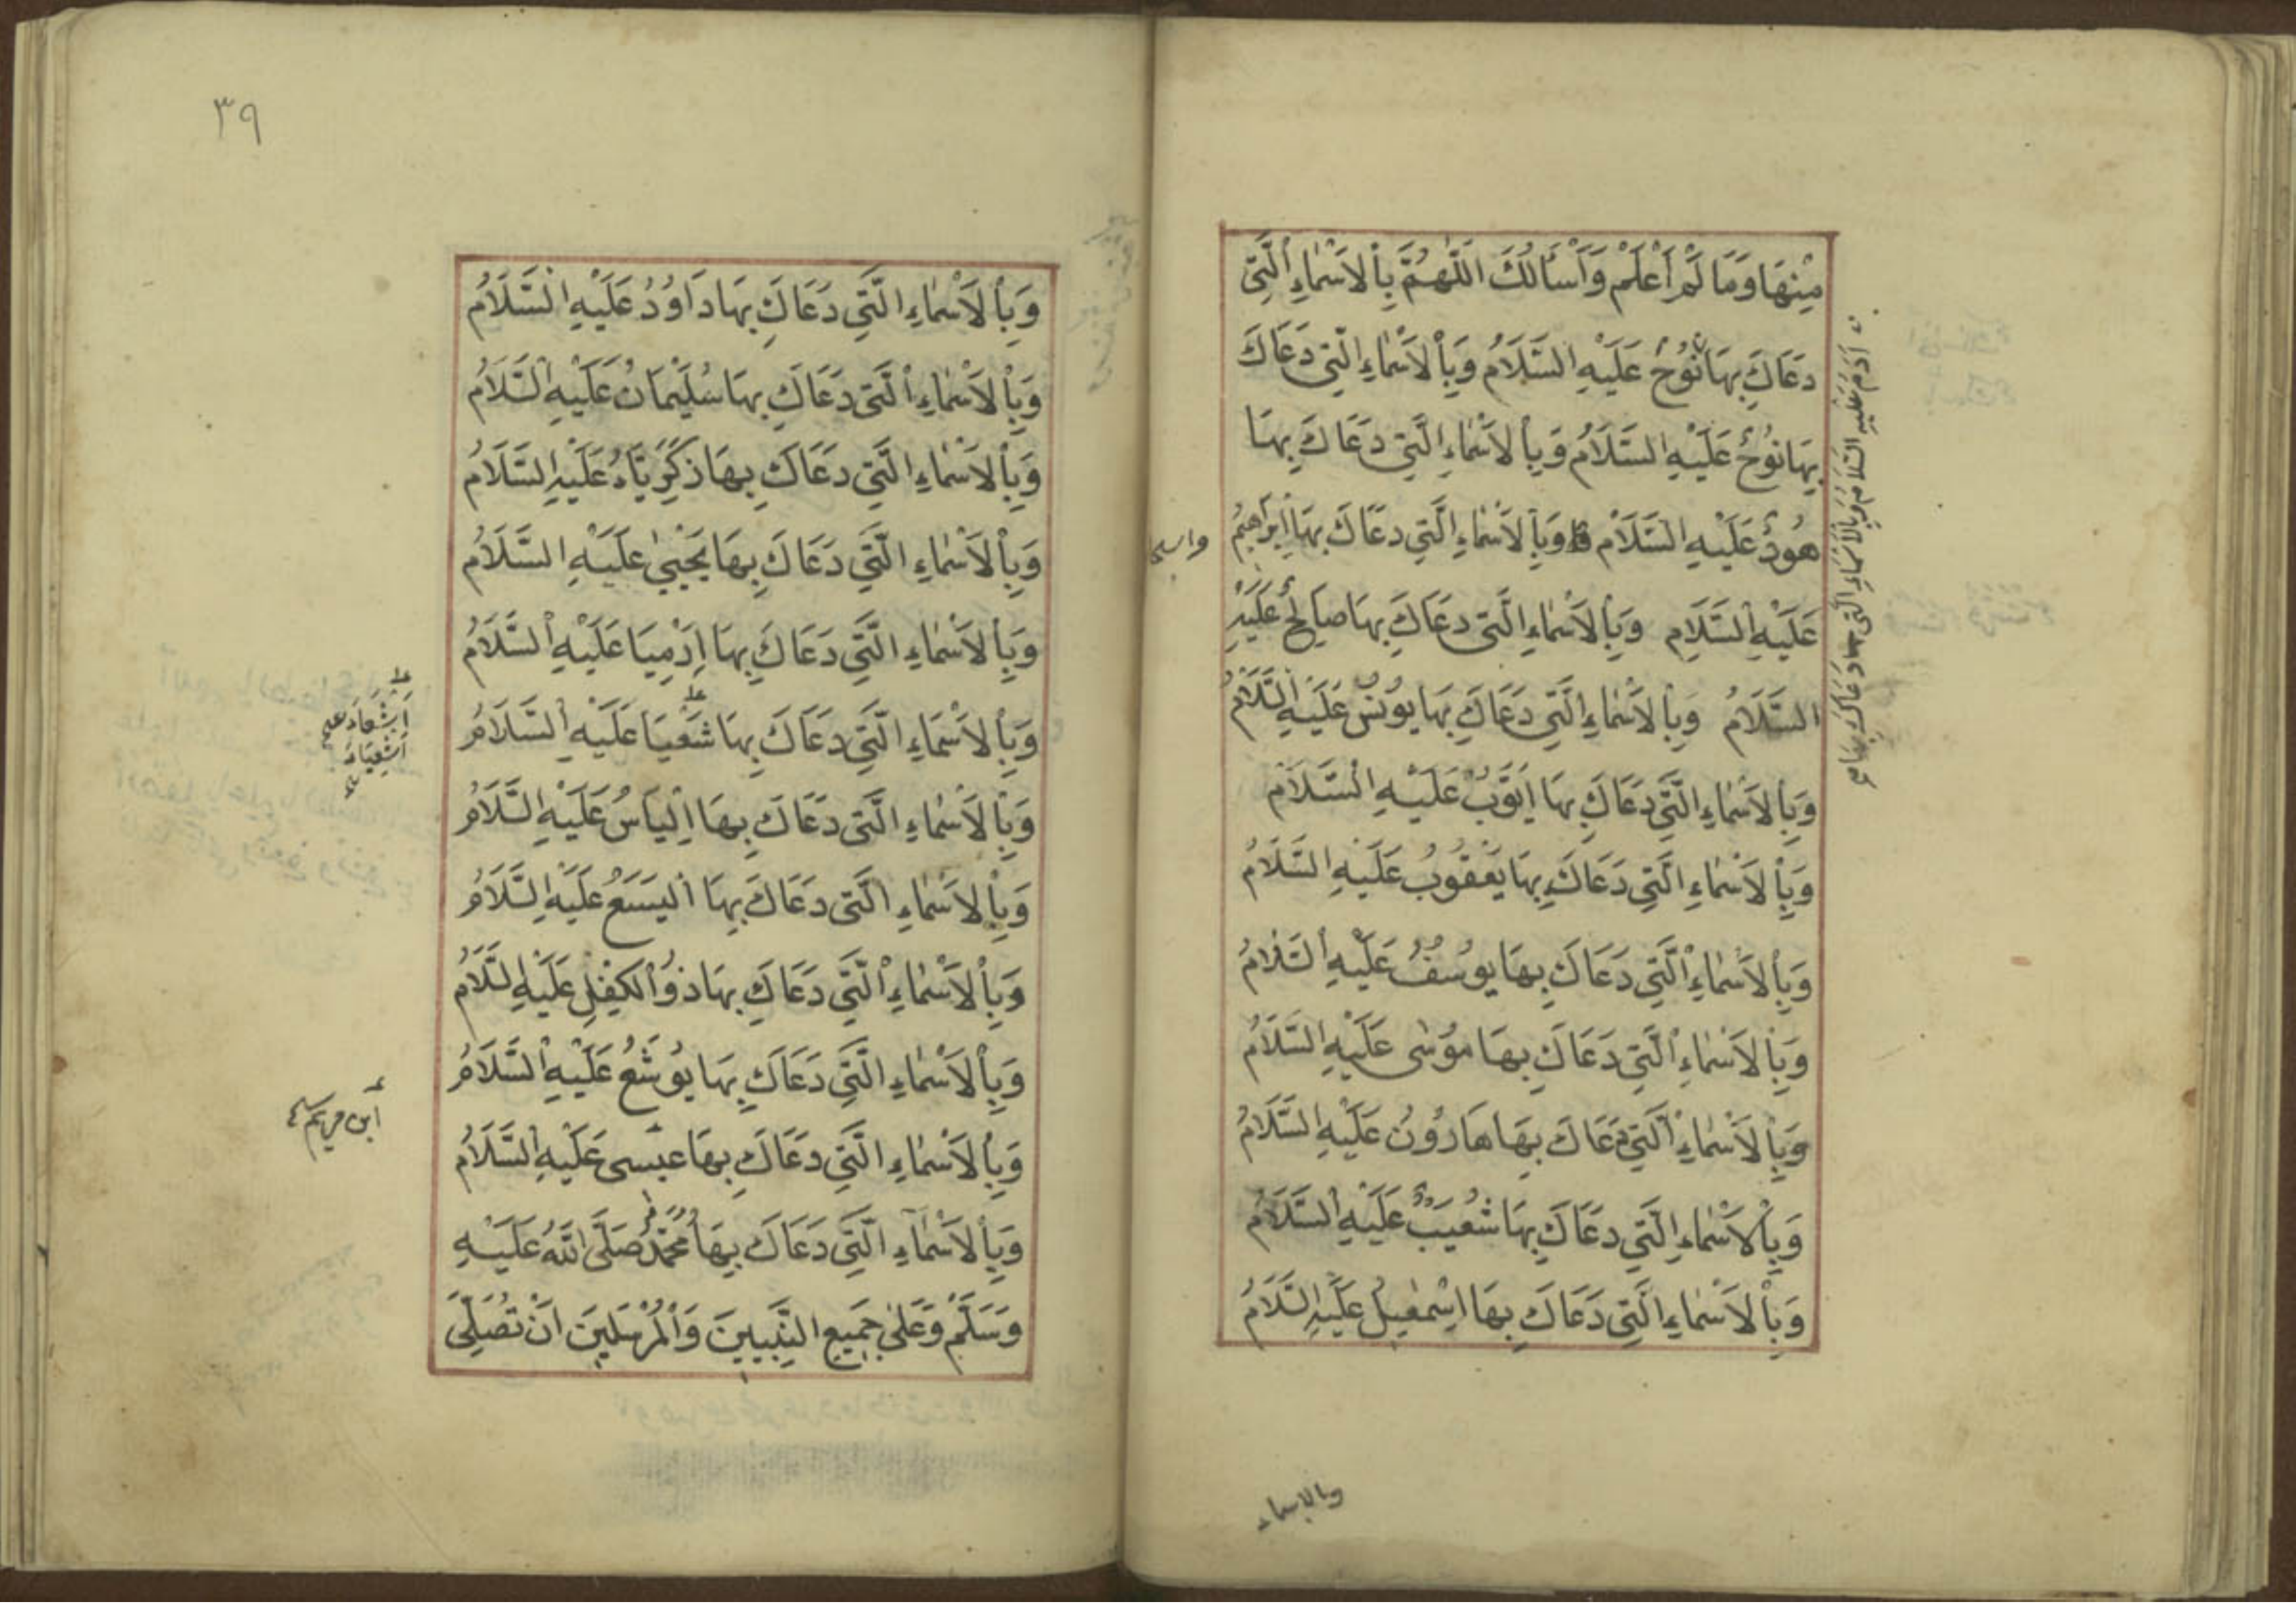 مِنْهَا وَمَا لَمْ أَعْلَمْ وَأَسْأَلُكَ اللَّهُمَّ بِالْأَسْمَاءِ الَّتِي
دَعَاكَ بِهَا نُوحٌ عَلَيْهِ السَّلَامُ وَبِالْأَسْمَاءِ الَّتِي دَعَاكَ
بِهَا نُوحٌ عَلَيْهِ السَّلَامُ وَبِالْأَسْمَاءِ الَّتِي دَعَاكَ بِهَا
هُودٌ عَلَيْهِ السَّلَامُ وَبِالْأَسْمَاءِ الَّتِي دَعَاكَ بِهَا إِبْرَاهِيمُ
عَلَيْهِ السَّلَامِ وَبِالْأَسْمَاءِ الَّتِي دَعَاكَ بِهَا صَالِحٌ عَلَيْهِ
السَّلَامُ وَبِالْأَسْمَاءِ الَّتِي دَعَاكَ بِهَا يُونُسُ عَلَيْهِ السَّلَامُ
وَبِالْأَسْمَاءِ الَّتِي دَعَاكَ بِهَا أَيُّوبُ عَلَيْهِ السَّلَامُ
وَبِالْأَسْمَاءِ الَّتِي دَعَاكَ بِهَا يَعْقُوبُ عَلَيْهِ السَّلَامُ
وَبِالْأَسْمَاءِ الَّتِي دَعَاكَ بِهَا يُوسُفُ عَلَيْهِ السَّلَامُ
وَبِالْأَسْمَاءِ الَّتِي دَعَاكَ بِهَا مُوسَى عَلَيْهِ السَّلَامُ
وَبِالْأَسْمَاءِ الَّتِي دَعَاكَ بِهَا هَارُونُ عَلَيْهِ السَّلَامُ
وَبِالْأَسْمَاءِ الَّتِي دَعَاكَ بِهَا شُعَيْبٌ عَلَيْهِ السَّلَامُ
وَبِالْأَسْمَاءِ الَّتِي دَعَاكَ بِهَا إِسْمٰعِيلُ عَلَيْهِ السَّلَامُ
آدَمُ عَلَيْهِ السَّلَامُ وَبِالْأَسْمَاءِ الَّتِي دَعَاكَ بِهَا
وبالاسماء
٣٩
وَبِالْأَسْمَاءِ الَّتِي دَعَاكَ بِهَا دَاوُدُ عَلَيْهِ السَّلَامُ
وَبِالْأَسْمَاءِ الَّتِي دَعَاكَ بِهَا سُلَيْمَانُ عَلَيْهِ السَّلَامُ
وَبِالْأَسْمَاءِ الَّتِي دَعَاكَ بِهَا زَكَرِيَّاءُ عَلَيْهِ السَّلَامُ
وَبِالْأَسْمَاءِ الَّتِي دَعَاكَ بِهَا يَحْيَىٰ عَلَيْهِ السَّلَامُ
وَبِالْأَسْمَاءِ الَّتِي دَعَاكَ بِهَا إِرْمِيَا عَلَيْهِ السَّلَامُ
وَبِالْأَسْمَاءِ الَّتِي دَعَاكَ بِهَا شَعْيَا عَلَيْهِ السَّلَامُ
وَبِالْأَسْمَاءِ الَّتِي دَعَاكَ بِهَا إِلْيَاسُ عَلَيْهِ السَّلَامُ
وَبِالْأَسْمَاءِ الَّتِي دَعَاكَ بِهَا الْيَسَعُ عَلَيْهِ السَّلَامُ
وَبِالْأَسْمَاءِ الَّتِي دَعَاكَ بِهَا ذُو الْكِفْلِ عَلَيْهِ السَّلَامُ
وَبِالْأَسْمَاءِ الَّتِي دَعَاكَ بِهَا يُوشَعُ عَلَيْهِ السَّلَامُ
وَبِالْأَسْمَاءِ الَّتِي دَعَاكَ بِهَا عِيسَى عَلَيْهِ السَّلَامُ
وَبِالْأَسْمَاءِ الَّتِي دَعَاكَ بِهَا مُحَمَّدٌ صَلَّى اللهُ عَلَيْهِ
وَسَلَّمَ وَعَلَىٰ جَمِيعِ النَّبِيِّينَ وَالْمُرْسَلِينَ أَنْ تُصَلِّيَ
أشعياء
ابن مريم